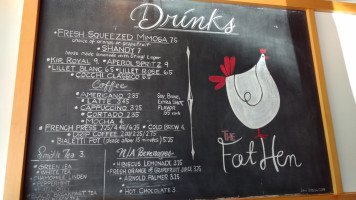 Drinks
• FRESH SQUEEZED MIMOSA 7.5
choice of orange or grapefruit
• SHANDY 7
house made lemonade with Stiegl Lager
• KIR ROYAL 9 • APEROL SPRITZ 9
• LILLET BLANC 6.5 • LILLET ROSE 6.5
• COCCHI CLASSICO 6.5
Coffee
• AMERICANO 3.25
• LATTE 3.75
• CAPPUCCINO 3.25
• CORTADO 3.25
• MOCHA 4
EXTRA SHOT,
FLAVOR
• FRENCH PRESS 2.75/4.75/6.75 • COLD BREW 4
• DRIP COFFEE 2.25/2.50/2.75
• BIALETTI POT (please allow 15 minutes) 5.25
Smith Tea 3
• GREEN TEA
• WHITE TEA
• PEPPERMINT TEA
N/A Beverages
• HIBISCUS LEMONADE 3.25
• FRESH ORANGE or GRAPEFRUIT JUICE 3.75
• ARNOLD PALMER 3.25
• HOT CHOCOLATE 3
THE
Fat Hen